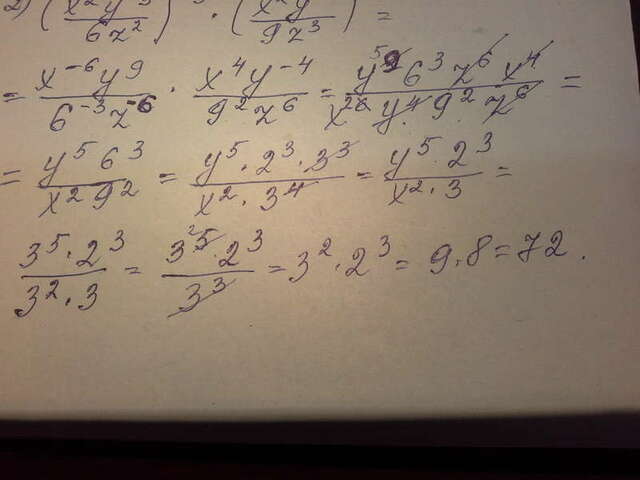 2) (x²y³/6z²)⁻³ · (x²y⁻²/9z³)² =
= x⁻⁶y⁹/6⁻³z⁻⁶ · x⁴y⁻⁴/9²z⁶ = y⁵⁹6³z⁶x⁴/x²⁶y⁴9²z⁶ =
= y⁵6³/x²9² = y⁵·2³·3³/x²·3⁴ = y⁵·2³/x²·3 =
3⁵·2³/3²·3 = 3²⁵·2³/3³ = 3²·2³ = 9·8 = 72.